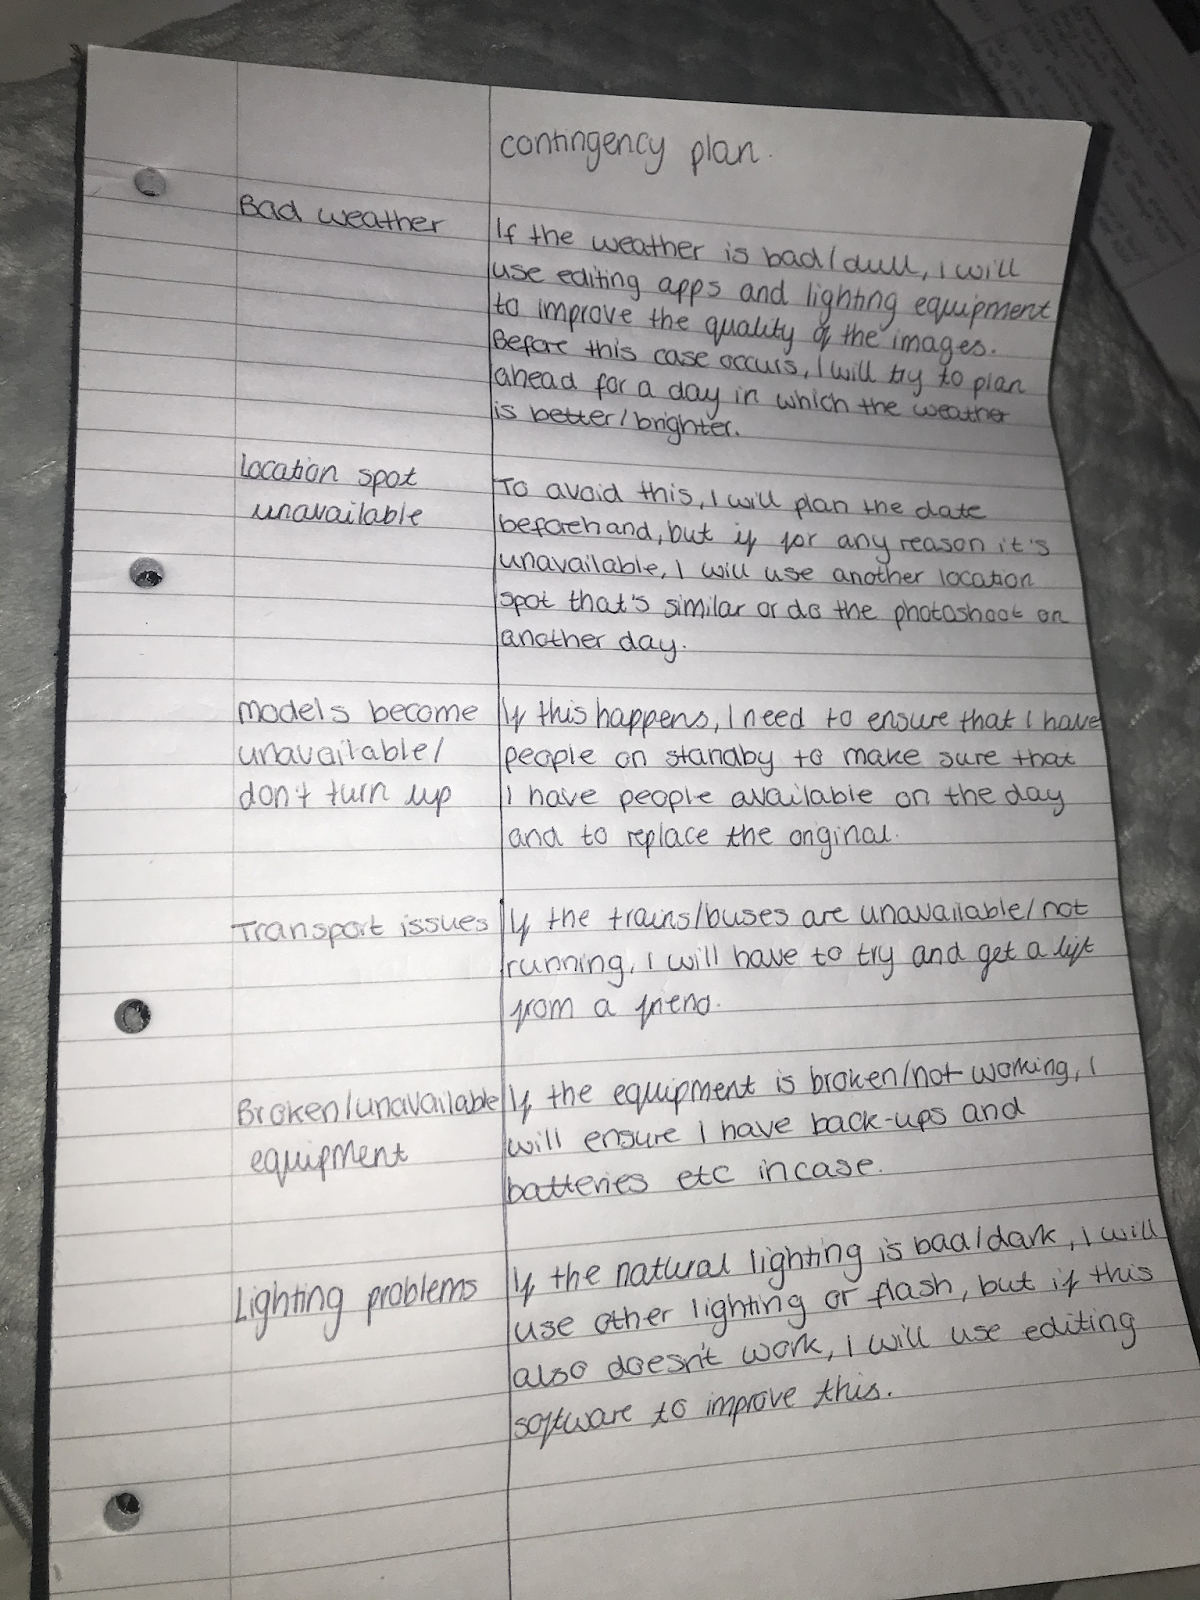 contingency plan.
Bad weather
If the weather is bad/dull, I will
use editing apps and lighting equipment
to improve the quality of the images.
Before this case occurs, I will try to plan
ahead for a day in which the weather
is better/brighter.
Location spot
unavailable
To avoid this, I will plan the date
beforehand, but if for any reason it's
unavailable, I will use another location
spot that's similar or do the photoshoot on
another day.
Models become
unavailable/
don't turn up
If this happens, I need to ensure that I have
people on standby to make sure that
I have people available on the day
and to replace the original.
Transport issues
If the trains/buses are unavailable/not
running, I will have to try and get a lift
from a friend.
Broken/unavailable
equipment
If the equipment is broken/not working, I
will ensure I have back-ups and
batteries etc incase.
Lighting problems
If the natural lighting is bad/dark, I will
use other lighting or flash, but if this
also doesn't work, I will use editing
software to improve this.